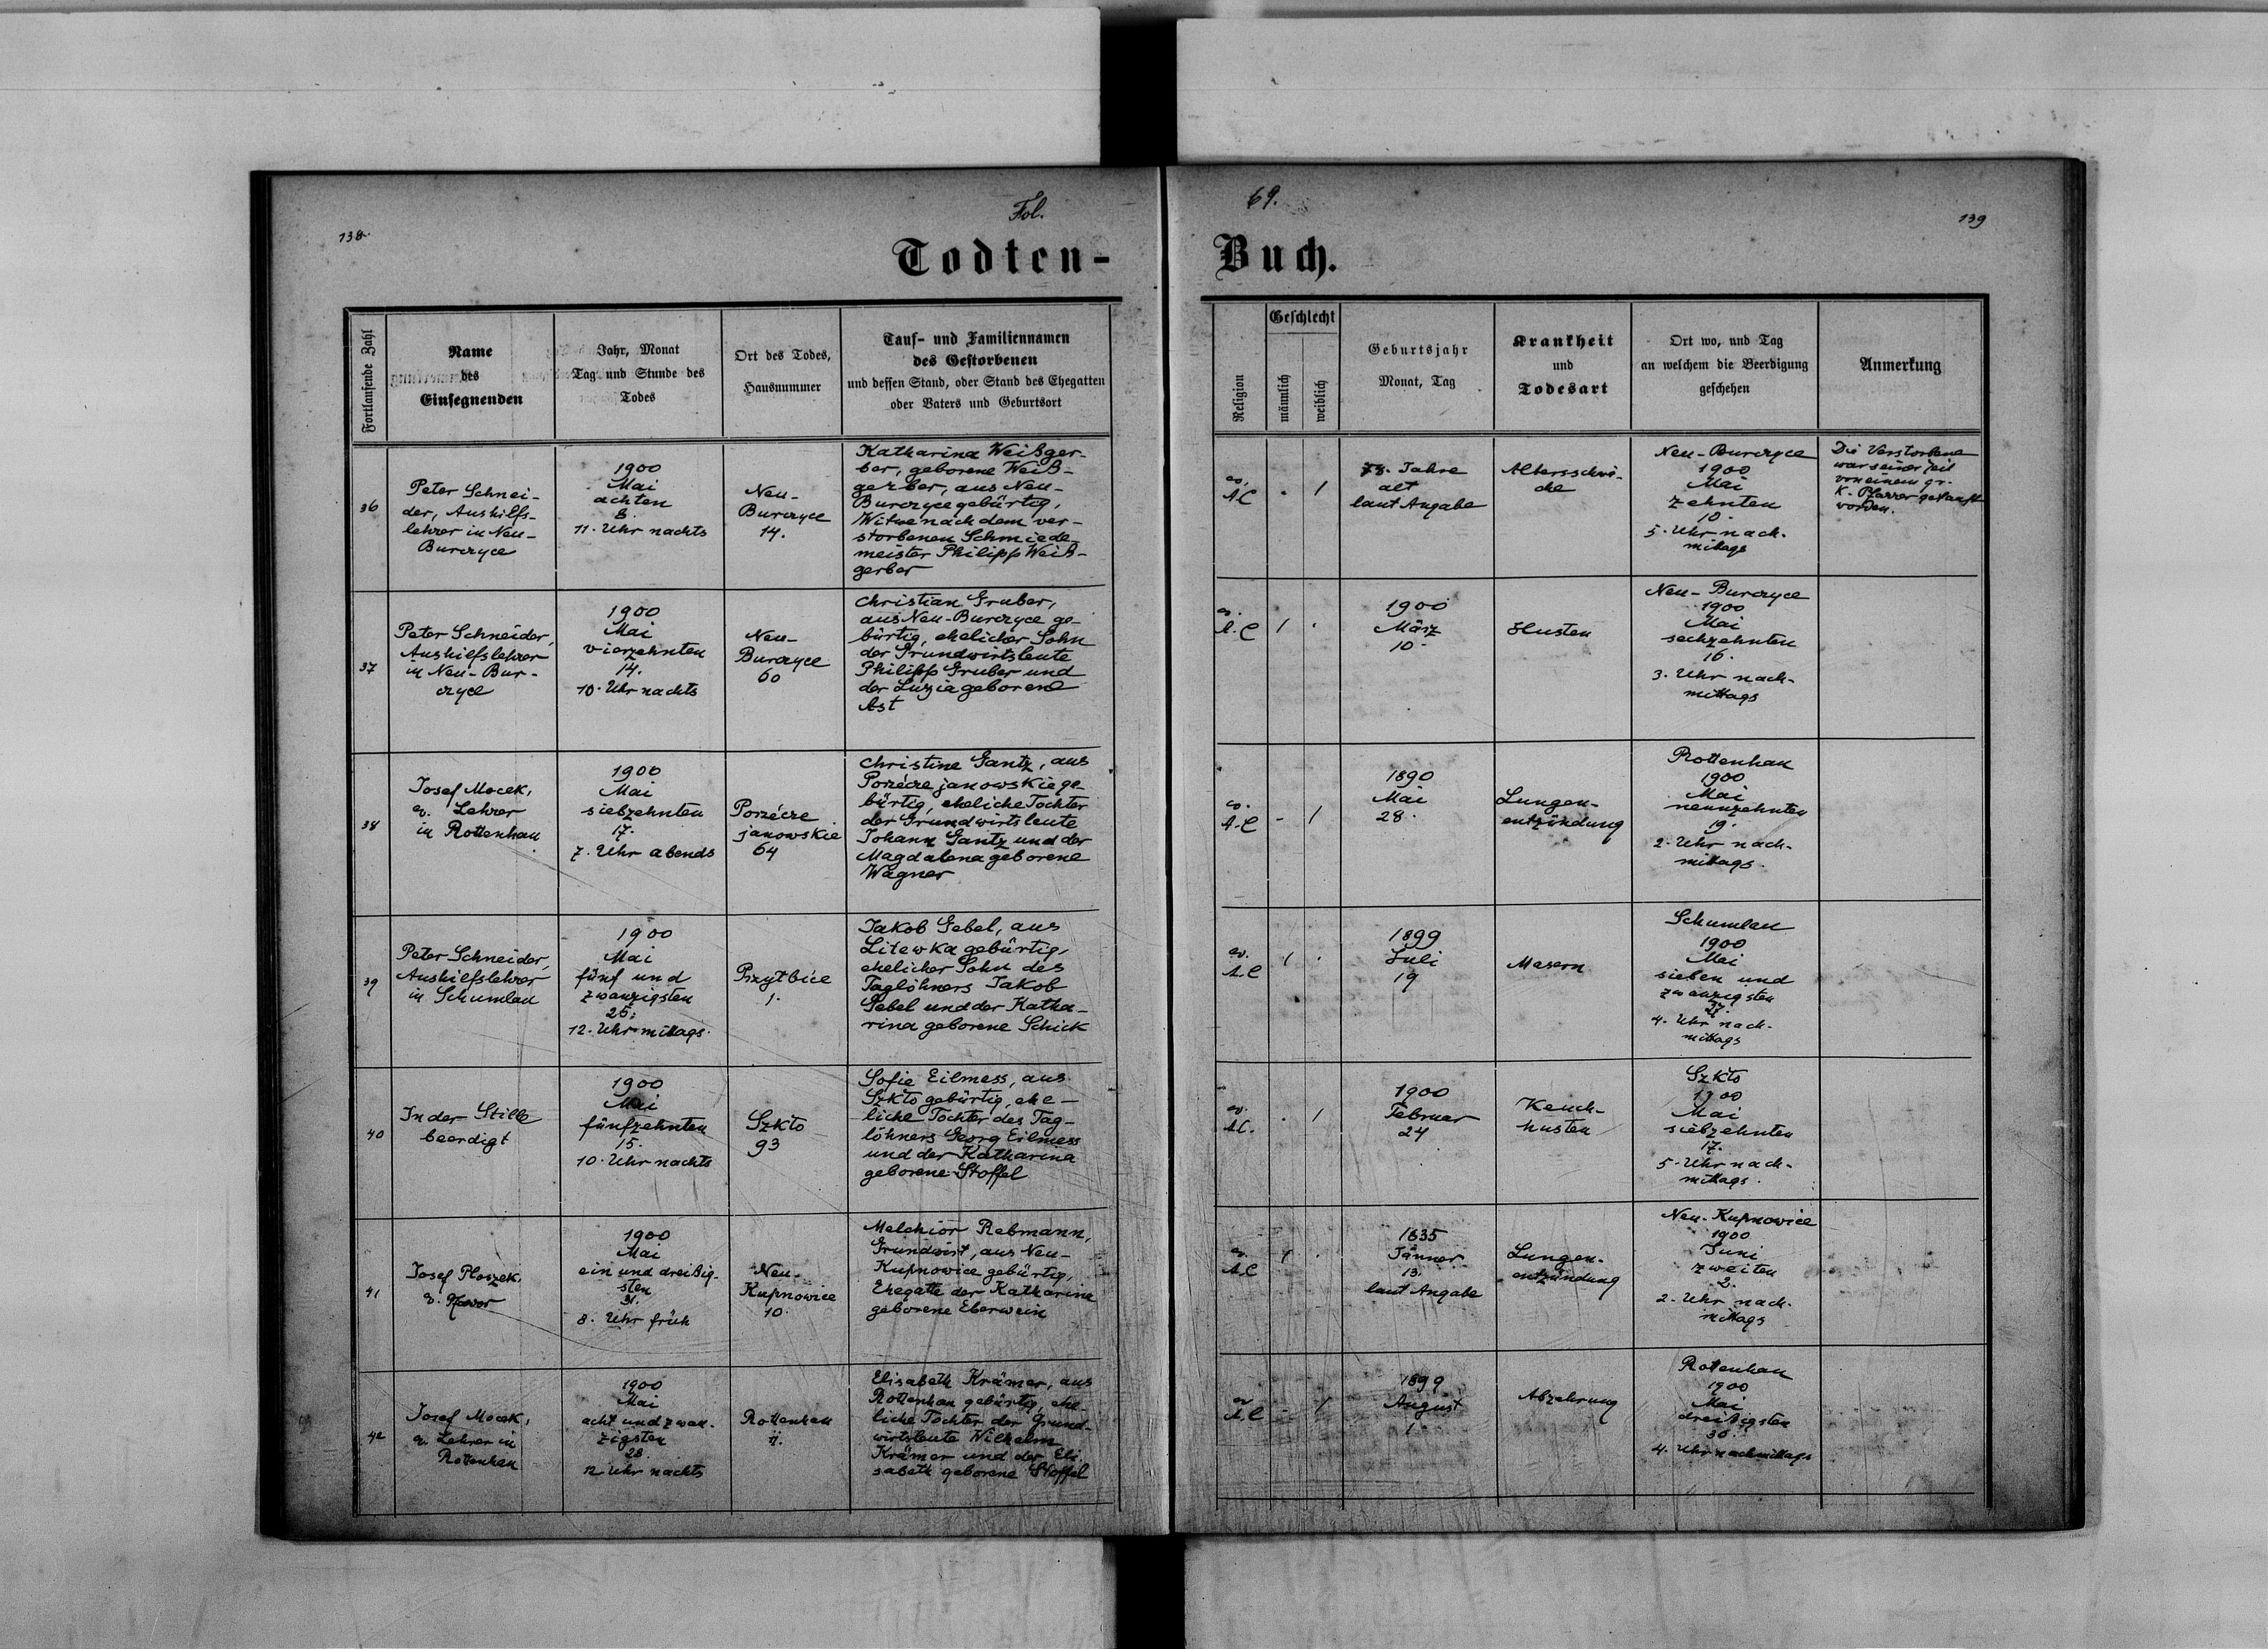 Fol.
69.
138.
139
Todten-
Buch.
Fortlaufende Zahl
Name
des
Einsegnenden
Jahr, Monat
Tag und Stunde des
Todes
Ort des Todes,
Hausnummer
Tauf- und Familiennamen
des Gestorbenen
und dessen Stand, oder Stand des Ehegatten
oder Vaters und Geburtsort
Religion
Geschlecht
männlich
weiblich
Geburtsjahr
Monat, Tag
Krankheit
und
Todesart
Ort wo, und Tag
an welchem die Beerdigung
geschehen
Anmerkung
36
Peter Schnei-
der, Aushilfs-
lehrer in Neu-
Burczyce
1900
Mai
achten
8.
11. Uhr nachts
Neu-
Burczyce
14.
Katharina Weißger-
ber, geborene Weiß-
gerber, aus Neu-
Burczyce gebürtig,
Witwe nach dem ver-
storbenen Schmiede-
meister Philipp Weiß-
gerber
ev.
A.C
-
1
78. Jahre
alt
laut Angabe
Altersschwä-
che
Neu-Burczyce
1900
Mai
zehnten
10.
5. Uhr nach-
mittags
Die Verstorbene
war seiner Zeit
von einem gr.
k. Pfarrer getauft
worden.
37
Peter Schneider,
Aushilfslehrer
in Neu-Bur-
czyce
1900
Mai
vierzehnten
14.
10. Uhr nachts
Neu-
Burczyce
60
Christian Gruber,
aus Neu-Burczyce ge-
bürtig, ehelicher Sohn
der Grundwirtsleute
Philipp Gruber und
der Luzia geborene
Ast
ev.
A.C
1
-
1900
März
10.
Husten
Neu-Burczyce
1900
Mai
sechzehnten
16.
3. Uhr nach-
mittags
38
Josef Mocek,
ev. Lehrer
in Rottenhan
1900
Mai
siebzehnten
17.
7. Uhr abends
Porzécze
janowskie
64
Christine Gantz, aus
Porzécze janowskie ge-
bürtig, eheliche Tochter
der Grundwirtsleute
Johann Gantz und der
Magdalena geborene
Wagner
ev.
A.C
-
1
1890
Mai
28.
Lungen-
entzündung
Rottenhan
1900
Mai
neunzehnten
19.
2. Uhr nach-
mittags.
39
Peter Schneider,
Aushilfslehrer
in Schumlau
1900
Mai
fünf und
zwanzigsten
25.
12. Uhr mittags.
Przytbice
1.
Jakob Gebel, aus
Litewka gebürtig,
ehelicher Sohn des
Taglöhners Jakob
Gebel und der Katha-
rina geborene Schick
ev.
A.C
1
-
1899
Juli
19
Masern
Schumlau
1900
Mai
sieben und
zwanzigsten
27.
4. Uhr nach-
mittags
40
In der Stille
beerdigt
1900
Mai
fünfzehnten
15.
10. Uhr nachts
Szkto
93
Sofie Eilmess, aus
Szkto gebürtig, ehe-
liche Tochter des Tag-
löhners Georg Eilmess
und der Katharina
geborene Stoffel
ev.
A.C.
-
1
1900
Februar
24
Keuch-
husten
Szkto
1900
Mai
siebzehnten
17.
5. Uhr nach-
mittags.
41
Josef Ploszek,
ev. Pfarrer
1900
Mai
ein und dreißig-
sten
31.
8. Uhr früh
Neu-
Kupnowice
10.
Melchior Rebmann,
Grundwirt, aus Neu-
Kupnowice gebürtig,
Ehegatte der Katharina
geborene Eberwein
ev.
A.C
1
-
1835
Jänner
13.
laut Angabe
Lungen-
entzündung
Neu-Kupnowice
1900
Juni
zweiten
2.
2. Uhr nach-
mittags
42
Josef Mocek,
ev. Lehrer in
Rottenhan
1900
Mai
acht und zwan-
zigsten
28.
12 Uhr nachts
Rottenhan
Elisabeth Krämer, aus
Rottenhan gebürtig, ehe-
liche Tochter der Grund-
wirtsleute Wilhelm
Krämer und der Eli-
sabeth geborene Stoffel
ev.
A.C
-
1
1899
August
1.
Abzehrung
Rottenhan
1900
Mai
dreißigsten
30.
4. Uhr nachmittags